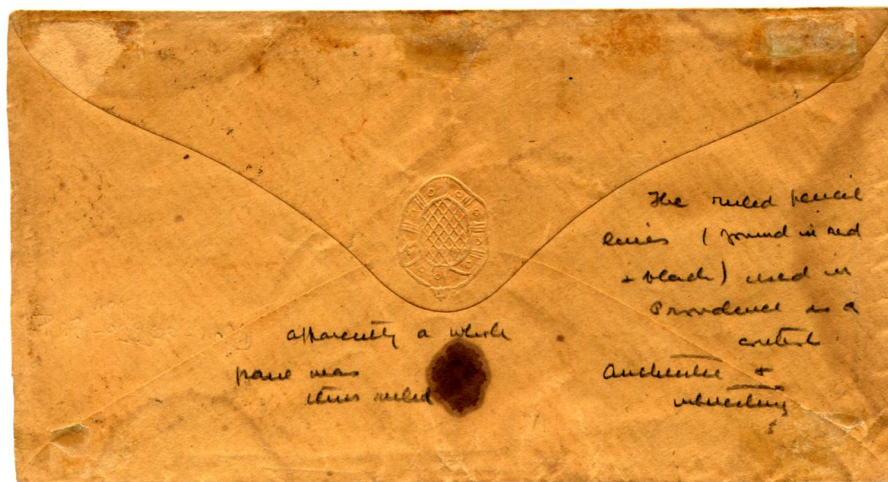 The ruled pencil
lines (found in red
+ black) used in
Providence is a
control
Authentic +
interesting
apparently a whole
pane was
thus ruled